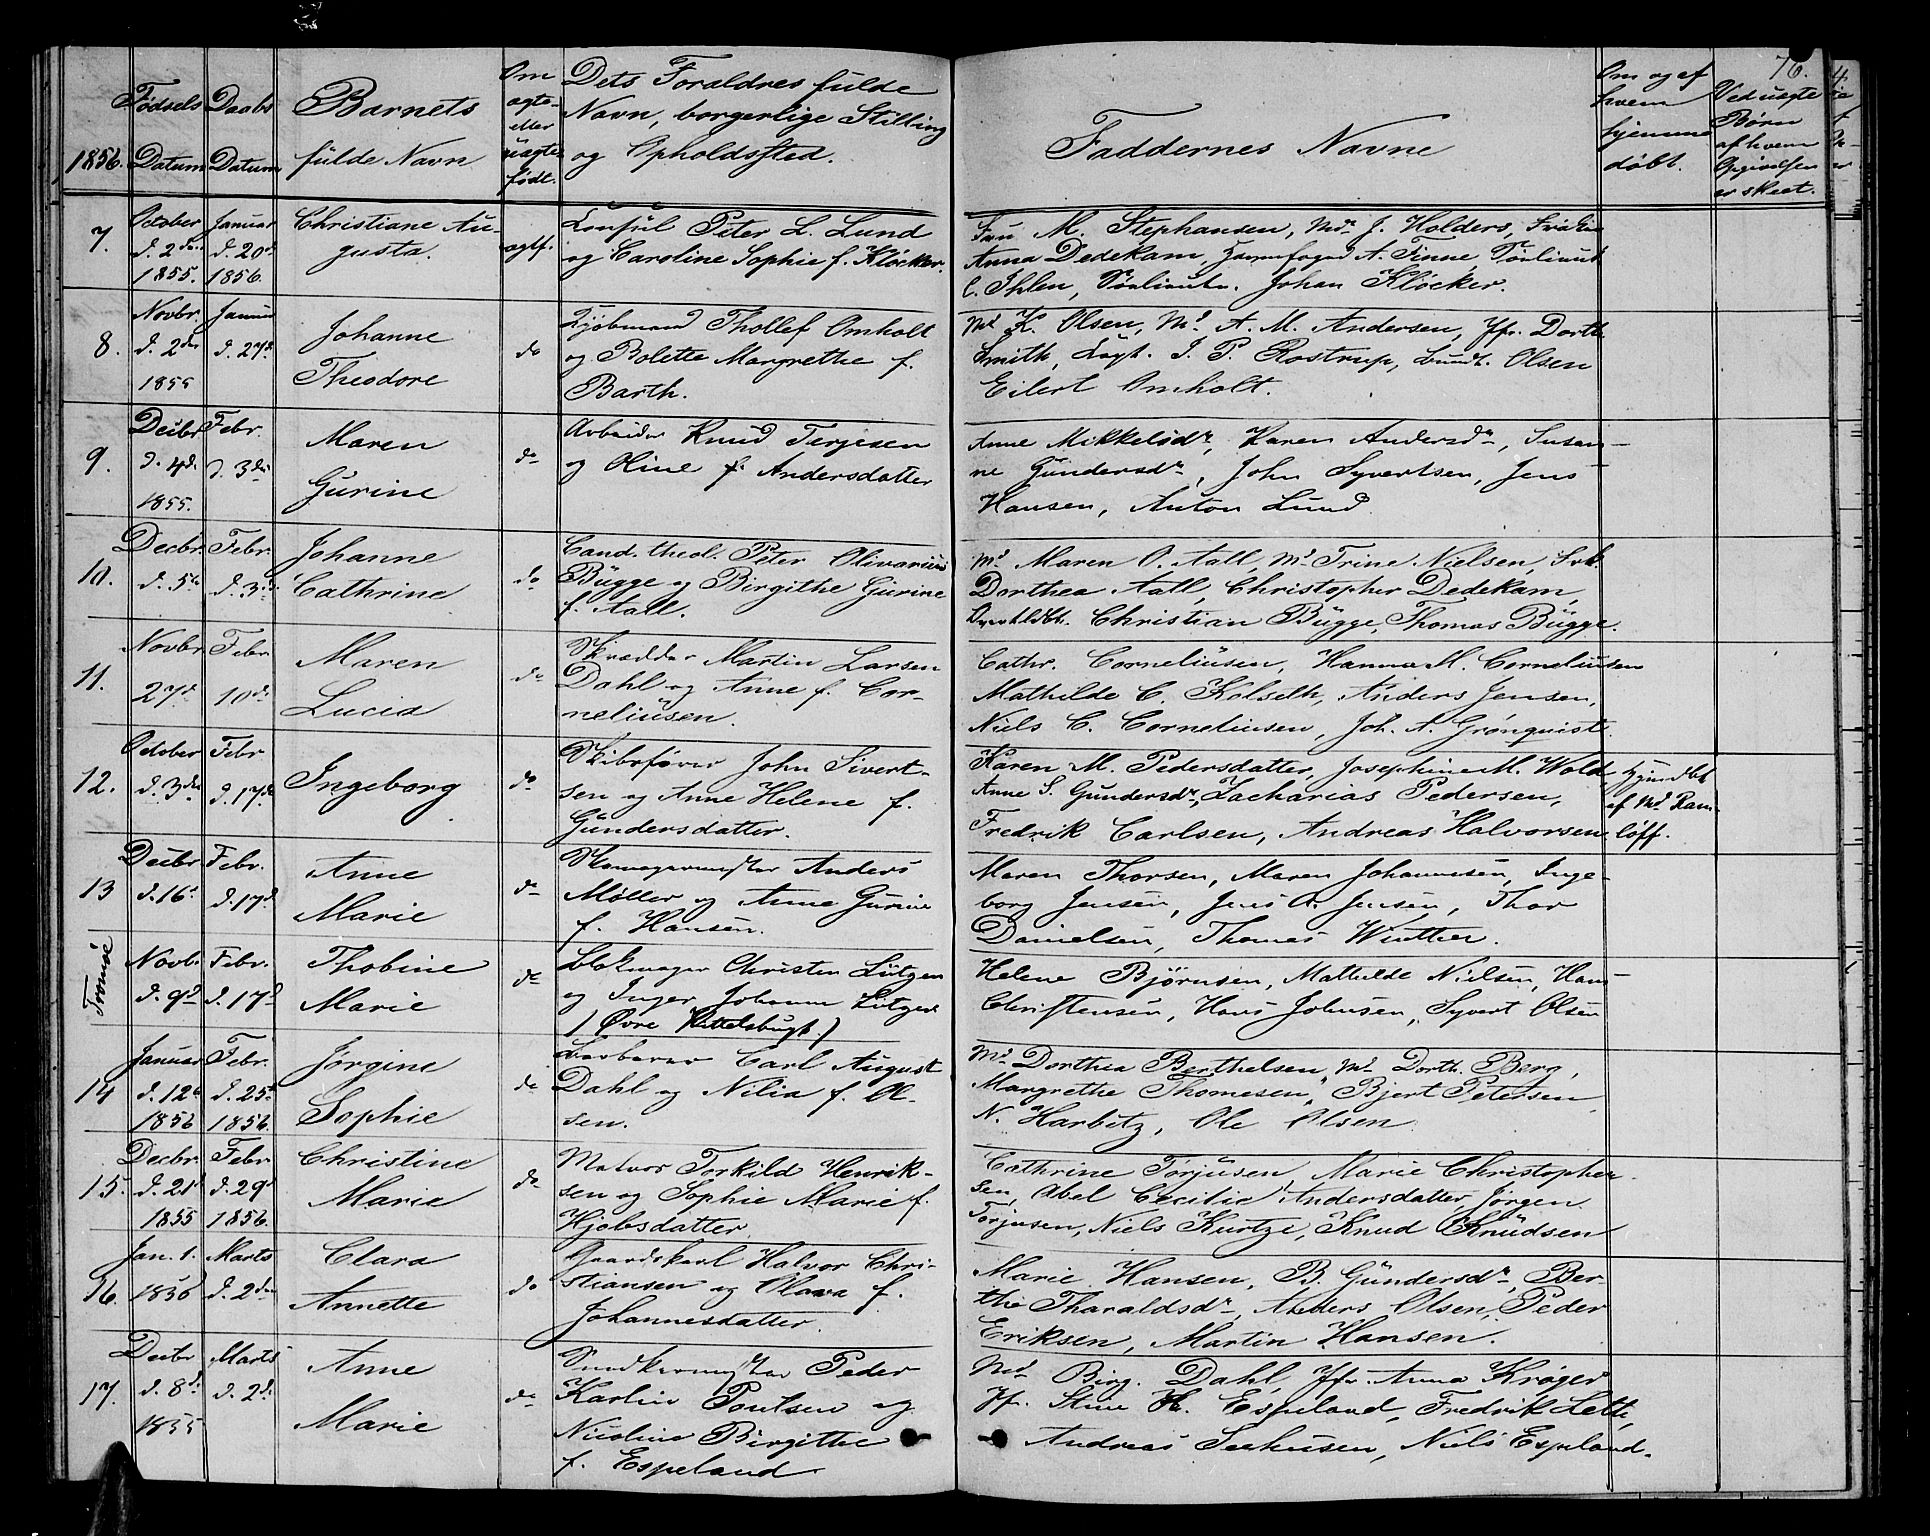 76.
1856.
Fødsels Datum
Daabs Datum
Barnets
fulde Navn
Om
ægte-
eller
uægte
født.
Dets Forældres fulde
Navn, borgerlige Stilling
og Opholdssted.
Faddernes Navne
Om og af
hvem
hjemme
døbt.
Ved uægte
Børn
af hvem
Opgivelsen
er skeet.
7.
October
d. 2den
1855.
Januar
d. 20de
1856.
Christiane Au-
gusta.
ægtf.
Consul Peter L. Lund
og Caroline Sophie f. Kløcker.
Fru M. Stephansen, Md. J. Holders, Frøken
Anna Dedekam, A. Finne,
C. Ihlen, Johan Kløcker.
8.
Novbr.
d. 2den
1855
Januar
d. 27de
Johanne
Theodore
do
Kjøbmand Thollef Omholt
og Bolette Margrethe f.
Barth.
Md. K. Olsen, Md. A. M. Andersen, Jfr. Dorth.
Smith, Capt. J. P. Rostrup, Olsen
Eilert Omholt.
9.
Decbr
d. 4de
1855.
Febr.
d. 3die
Maren
Gurine
do
Arbeider Knud Terjesen
og Oline f. Andersdatter
Anne Mikkelsdr, Karen Andersdr, Susan-
ne Gundersdr, John Syvertsen, Jens
Hansen, Anton Lund
10.
Decbr.
d. 5te
Febr.
d. 3die
Johanne
Cathrine
do
Cand. theol. Peter Olivarius
Bugge og Birgithe Gurine
f. Aall.
Md Maren O. Aall, Md. Trine Nielsen, Frk.
Dorthea Aall, Christopher Dedekam,
Christian Bugge, Thomas Bugge.
11.
Novbr
27de
Febr
10de
Maren
Lucia
do
Skrædder Martin Larsen
Dahl og Anne f. Cor-
neliusen.
Cathr. Corneliusen, Hanna M. Corneliusen
Mathilde C. Kolseth, Anders Jensen,
Niels C. Corneliusen, Joh. A. Grønquist.
12.
October
d. 3die
Febr
d. 17de
Ingeborg
do
Skibsfører John Sivert-
sen og Anne Helene f.
Gundersdatter.
Karen M. Pedersdatter, Josephine M. Wold
Anne S. Gundersdr, Zacharias Pedersen,
Fredrik Carlsen, Andreas Halvorsen
hjemdbt
af Md. Ram-
løff.
13
Decbr
d. 16de
Febr.
d. 17de
Anne
Marie
do
Skomagermester Anders
Møller og Anne Gurine
f. Hansen.
Maren Thorsen, Maren Johannesen, Inge-
borg Jensen, Jens A. Jensen, Thor
Danielsen, Thomas Winther.
Tromøe
Novb.
d. 9de
Febr.
d. 17de
Thobine
Marie
do
Blokmager Christen Lutzen
og Inger Johanne Lutzen
(Øvre Kittelsbugt.)
Helene Bjørnsen, Mathilde Nielsen, Hans
Christensen, Hans Johnsen, Syvert Olsen
14
Januar
d. 12te
1856
Febr.
d. 25de
1856.
Jørgine
Sophie
do
Barberer Carl August
Dahl og Nilia f. Ol-
sen.
Md. Dorthea Berthelsen, Md. Dorth. Berg,
Margrethe Thomesen, Bjert Petersen
N. Harbitz, Ole Olsen
15.
Decbr.
d. 21de
1855
Febr
d. 29de
1856.
Christine
Marie
do
Matros Torkild Henrik-
sen og Sophie Marie f.
Hjobsdatter.
Cathrine Torjusen, Marie Christopher-
sen, Abel Cecilie Andersdatter, Jørgen
Torjusen, Niels Kurtze, Knud Knudsen
16.
Jan. 1.
1856
Marts
d. 2den
Clara
Annette
do
Gaardskarl Halvor Chri-
stiansen og Olava f.
Johannesdatter.
Marie Hansen, B. Gundersdr, Ber-
the Tharaldsdr, Anders Olsen, Peder
Eriksen, Martin Hansen.
17.
Decbr
d. 8de
1855
Marts
d. 2de
Anne
Marie
do
Peder
Karlin Poulsen og
Nicoline Birgithe
f. Espeland
Md. Birg. Dahl, Jfr. Anna Krøger
Jf. Stine H. Espeland, Fredrik Lette,
Andreas Seehusen, Niels Espeland.